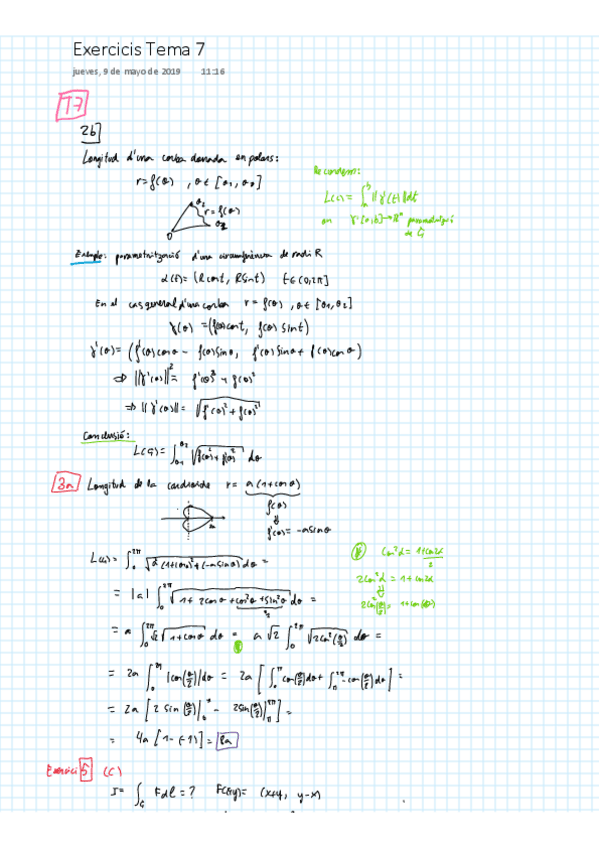 Exercicis Tema 7
jueves, 9 de mayo de 2019 11:16
T7
2b]
Longitud d'una corba donada en polars:
r=f(θ) , θ∈ [θ₁, θ₂]
Recordem:
L(C) = ∫ₐᵇ ||γ'(t)||dt
on γ:[a,b]→ℝⁿ parametrització
de C
θ₂
r=f(θ)
θ₁
0
Exemple: parametrització d'una circumferència de radi R
α(t)= (Rcost, Rsint) t∈(0,2π]
En el cas general d'una corba r= f(θ) , θ∈ [θ1,θ2]
γ(θ) =(f(θ)cost, f(θ) sint)
γ'(θ)= (f'(θ)cosθ - f(θ)sinθ, f'(θ)sinθ+ f(θ)cosθ)
=> ||γ'(θ)||²= f'(θ)² + f(θ)²
=> ||γ'(θ)|| = √(f'(θ)² + f(θ)²)
Conclusió:
L(C)= ∫_θ₁^θ₂ √(f(θ)²+ f'(θ)²) dθ
3a Longitud de la cardioide r= a(1+cosθ)
f(θ)
⇓
f'(θ)= -asinθ
L(C)= ∫₀^2π √(a²(1+cosθ)²+(-asinθ)²) dθ =
= |a| ∫₀^2π √(1+ 2cosθ +cos²θ +sin²θ) dθ =
= a ∫₀^2π √2 √(1+cosθ) dθ = a √2 ∫₀^2π √(2cos²(θ/2)) dθ =
cos²α = (1+cos2α)/2
2cos²α = 1+cos2α
⇓
2cos²(θ/2) = 1+cos(θ)
= 2a ∫₀^2π |cos(θ/2)|dθ = 2a [∫₀^π cos(θ/2)dθ+ ∫_π^2π -cos(θ/2)dθ] =
= 2a [2 sin(θ/2)|₀^π - 2sin(θ/2)|_π^2π] =
= 4a [1-(-1)] = 8a
Exercici 5 (c)
I= ∫_C Fdl = ? F(x,y)= (x+y, y-x)